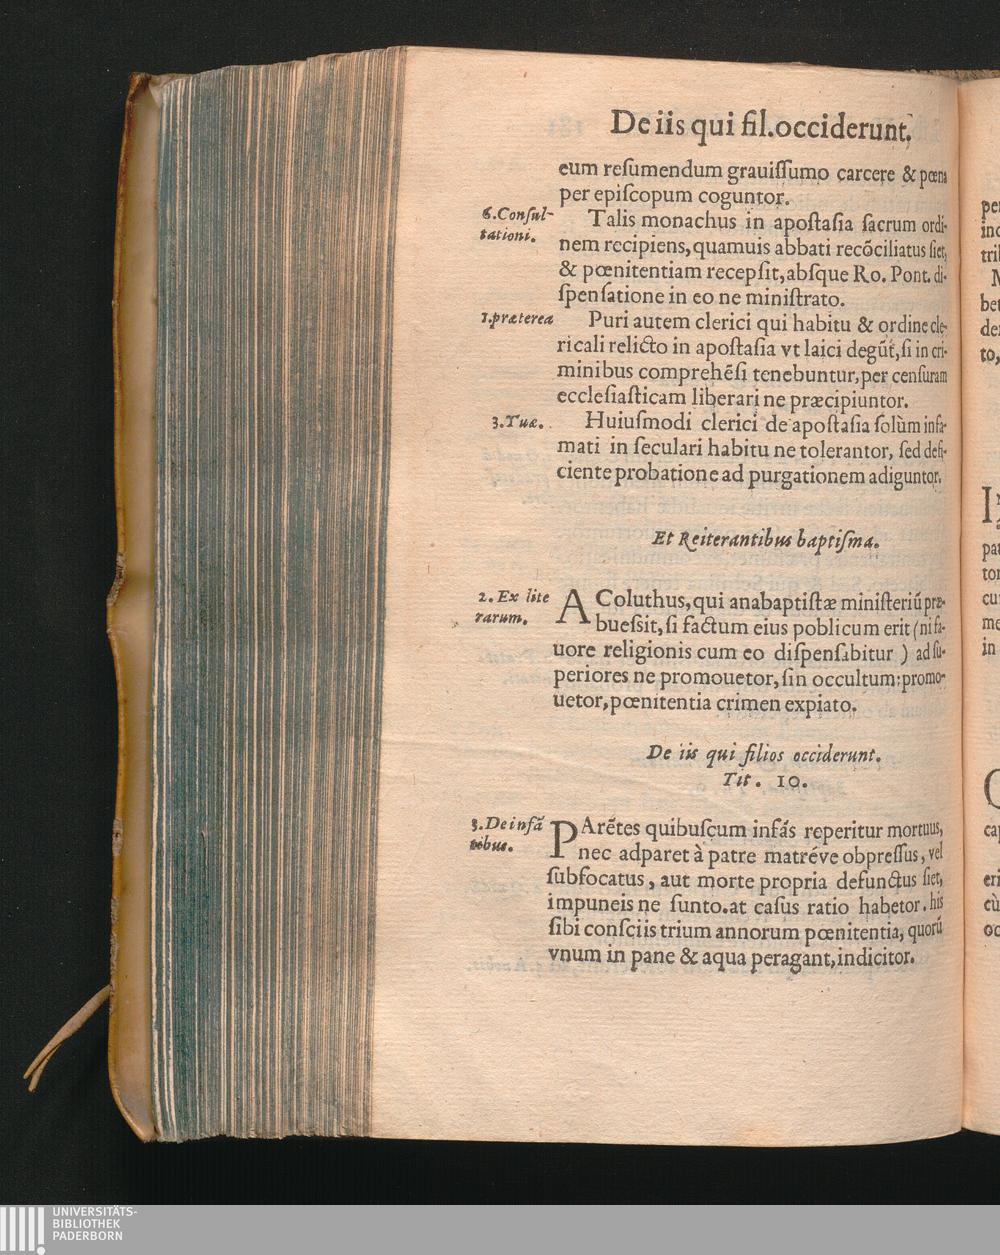 De iis qui fil.occiderunt.
eum reſumendum grauiſſumo carcere & pœna
per epiſcopum coguntor.
6.Conſul-
tationi.
Talis monachus in apoſtaſia ſacrum ordi-
nem recipiens,quamuis abbati recõciliatus ſiet,
& pœnitentiam recepſit,abſque Ro. Pont. di-
ſpenſatione in eo ne miniſtrato.
1.præterea
Puri autem clerici qui habitu & ordine cle-
ricali relicto in apoſtaſia vt laici degũt,ſi in cri-
minibus comprehẽſi tenebuntur,per cenſuram
eccleſiaſticam liberari ne præcipiuntor.
3.Tuæ.
Huiuſmodi clerici de apoſtaſia ſolùm infa-
mati in ſeculari habitu ne tolerantor, ſed defi-
ciente probatione ad purgationem adiguntor.
Et Reiterantibus baptiſma.
2. Ex lite
rarum.
A Coluthus,qui anabaptiſtæ miniſteriũ præ-
bueſsit,ſi factum eius poblicum erit (ni fa-
uore religionis cum eo diſpenſabitur ) ad ſu-
periores ne promouetor,ſin occultum:promo-
uetor,pœnitentia crimen expiato.
De iis qui filios occiderunt.
Tit. 10.
3.De infã
tibus.
PArẽtes quibuſcum infãs reperitur mortuus,
nec adparet à patre matréve obpreſſus, vel
ſubfocatus, aut morte propria defunctus ſiet,
impuneis ne ſunto.at caſus ratio habetor. his
ſibi conſciis trium annorum pœnitentia, quorũ
vnum in pane & aqua peragant,indicitor.
UNIVERSITÄTS-
BIBLIOTHEK
PADERBORN